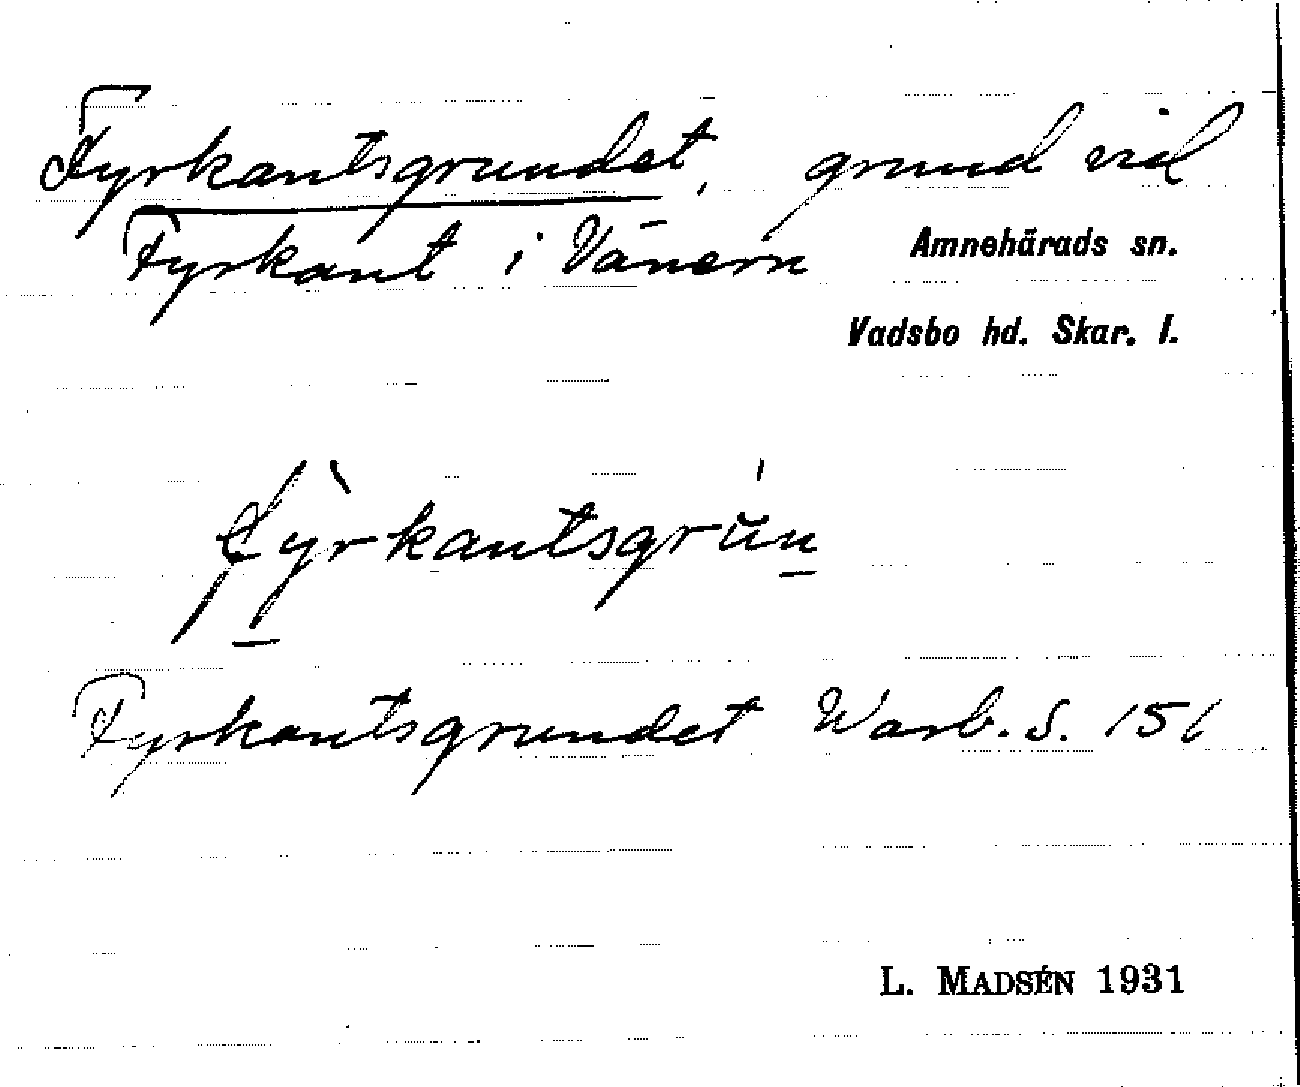 Fyrkantsgrundet, grund vid
Fyrkant i Vänern
Amnehärads sn.
Vadsbo hd. Skar. l.
fỳ̠rkantsgrún̠
Fyrkantsgrundet Warb. S. 151
L. MADSÉN 1931